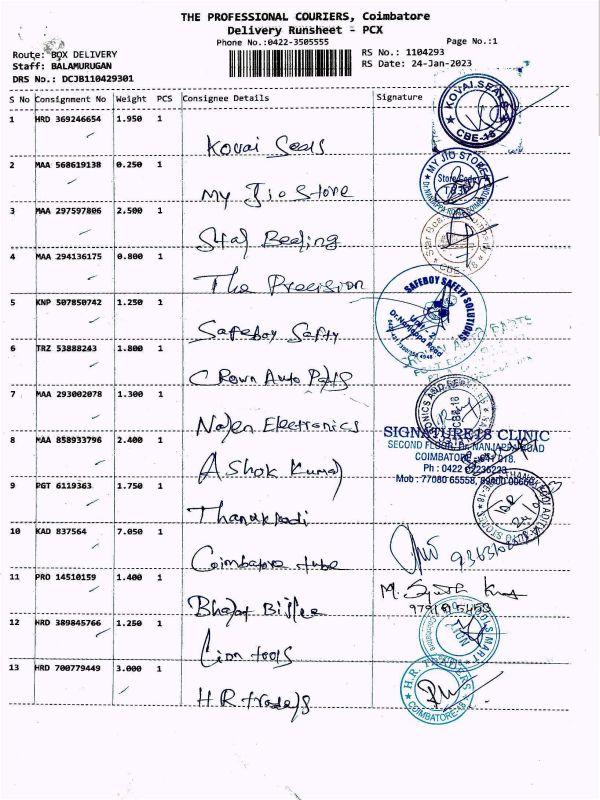 THE PROFESSIONAL COURIERS, Coimbatore
Delivery Runsheet - PCX
Phone No.:0422-3505555 Page No.:1
Route: BOX DELIVERY RS No.: 1104293
Staff: BALAMURUGAN RS Date: 24-Jan-2023
DRS No.: DCJB110429301
S No Consignment No Weight PCS Consignee Details Signature
1 HRD 369246654 1.950 1
Kovai Seals
KOVAI SEALS
CBE-18
2 MAA 568619138 0.250 1
My Jio Store
MY JIO STORE
Store Code
3 MAA 297597806 2.500 1
Star Bearing
CBE - 18
4 MAA 294136175 0.800 1
The Precision
5 KNP 507850742 1.250 1
Safeboy Safty
SAFEBOY SAFETY SOLUTIONS
Dr.Nanjappa Road
6 TRZ 53888243 1.800 1
Crown Auto Parts
AUTO PARTS
7 MAA 293002078 1.300 1
Electronics
8 MAA 858933796 2.400 1
Ashok Kumar
SIGNATURE18 CLINIC
SECOND FLOOR, Dr. NANJAPPA ROAD
COIMBATORE - 641 018.
Ph : 0422
Mob : 77080 65558,
9 PGT 6119363 1.750 1
10 KAD 837564 7.050 1
Coimbatore tube
11 PRO 14510159 1.400 1
Bharat
12 HRD 389845766 1.250 1
Lion tools
LION
13 HRD 700779449 3.000 1
H.R traders
H.R. TRADERS
COIMBATORE-18